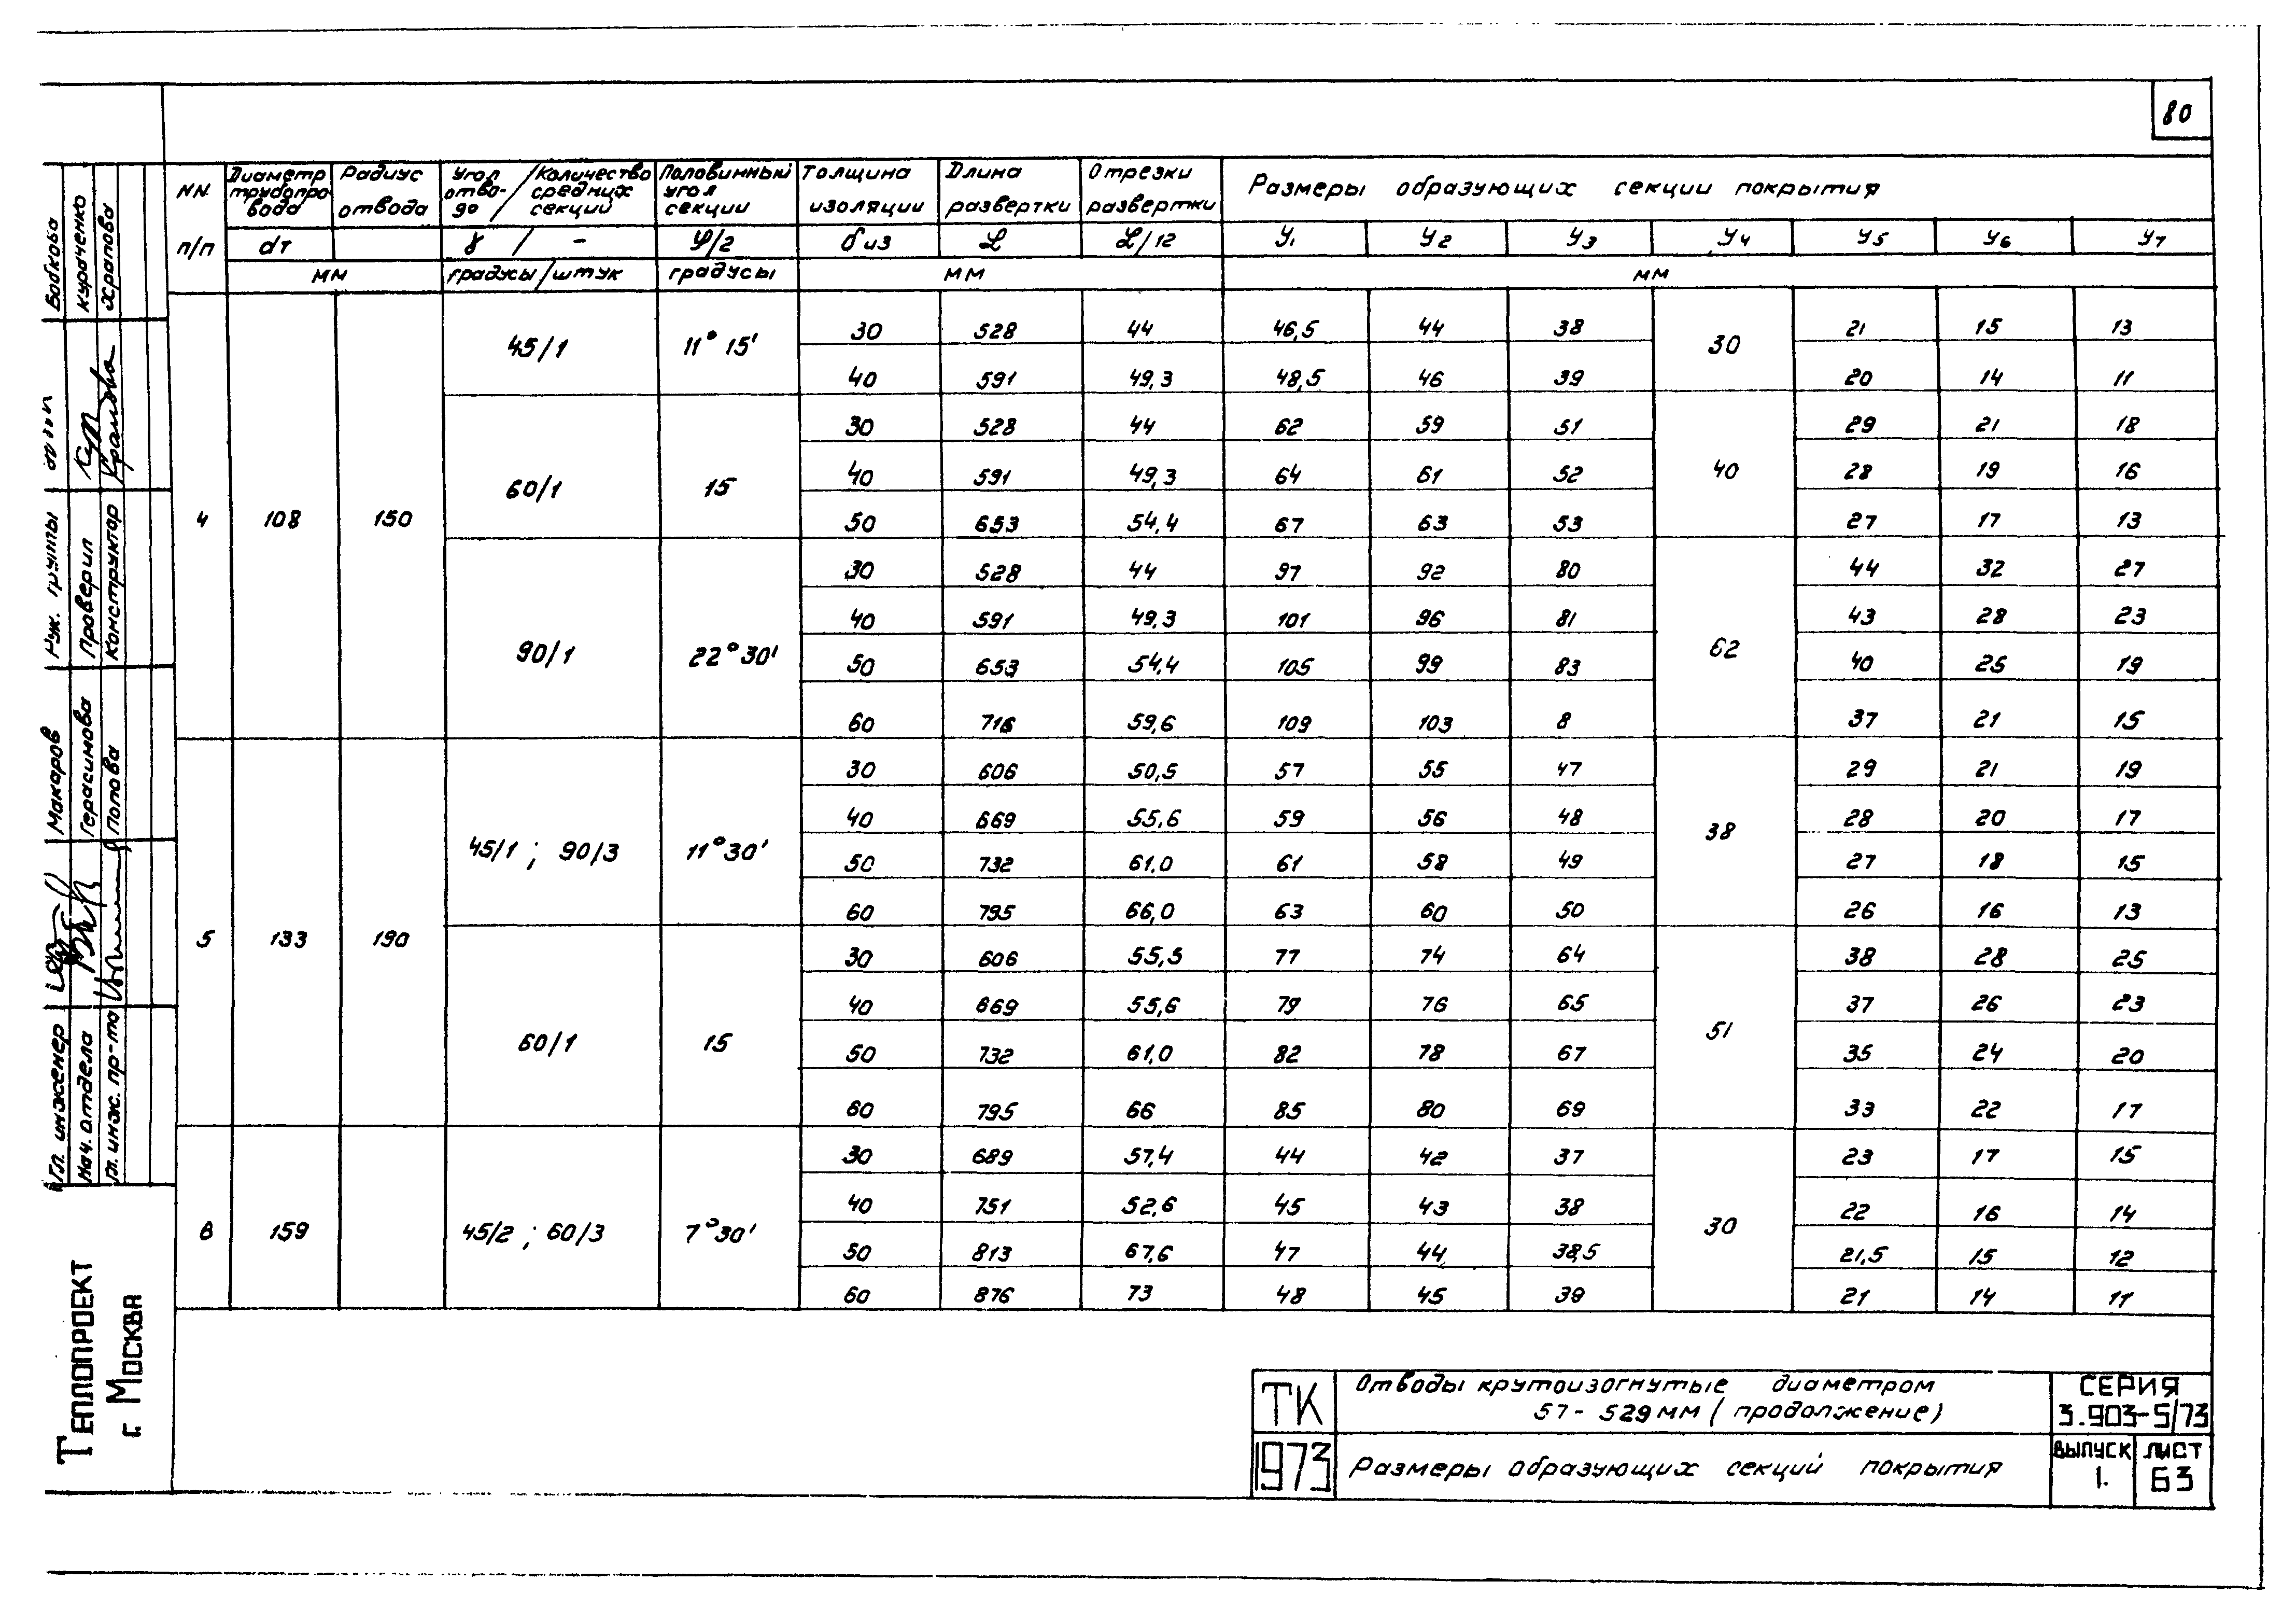 80
NN п/п | Диаметр трубопровода | Радиус отвода | Угол отво-до / Количество средних секций | Половинный угол секции | Толщина изоляции | Длина развертки | Отрезки развертки | Размеры образующих секции покрытия
dт | γ / - | φ/2 | δ из | L | L/12 | У1 | У2 | У3 | У4 | У5 | У6 | У7
мм | градусы/штук | градусы | мм | мм
4 | 108 | 150 | 45/1 | 11°15' | 30 | 528 | 44 | 46,5 | 44 | 38 | 30 | 21 | 15 | 13
40 | 591 | 49,3 | 48,5 | 46 | 39 | 20 | 14 | 11
60/1 | 15 | 30 | 528 | 44 | 62 | 59 | 51 | 40 | 29 | 21 | 18
40 | 591 | 49,3 | 64 | 61 | 52 | 28 | 19 | 16
50 | 653 | 54,4 | 67 | 63 | 53 | 27 | 17 | 13
90/1 | 22°30' | 30 | 528 | 44 | 97 | 92 | 80 | 62 | 44 | 32 | 27
40 | 591 | 49,3 | 101 | 96 | 81 | 43 | 28 | 23
50 | 653 | 54,4 | 105 | 99 | 83 | 40 | 25 | 19
60 | 716 | 59,6 | 109 | 103 | 8 | 37 | 21 | 15
5 | 133 | 190 | 45/1 ; 90/3 | 11°30' | 30 | 606 | 50,5 | 57 | 55 | 47 | 38 | 29 | 21 | 19
40 | 669 | 55,6 | 59 | 56 | 48 | 28 | 20 | 17
50 | 732 | 61,0 | 61 | 58 | 49 | 27 | 18 | 15
60 | 795 | 66,0 | 63 | 60 | 50 | 26 | 16 | 13
60/1 | 15 | 30 | 606 | 55,5 | 77 | 74 | 64 | 51 | 38 | 28 | 25
40 | 669 | 55,6 | 79 | 76 | 65 | 37 | 26 | 23
50 | 732 | 61,0 | 82 | 78 | 67 | 35 | 24 | 20
60 | 795 | 66 | 85 | 80 | 69 | 33 | 22 | 17
6 | 159 | 45/2 ; 60/3 | 7°30' | 30 | 689 | 57,4 | 44 | 42 | 37 | 30 | 23 | 17 | 15
40 | 751 | 52,6 | 45 | 43 | 38 | 22 | 16 | 14
50 | 813 | 67,6 | 47 | 44 | 38,5 | 21,5 | 15 | 12
60 | 876 | 73 | 48 | 45 | 39 | 21 | 14 | 11
Гл. инженер Макаров Рук. группы Бобкова
Нач. отдела Герасимова Проверил Кураченко
Гл. инж. пр-та Попова Конструктор Храпова
Теплопроект
г. Москва
ТК
1973
Отводы крутоизогнутые диаметром
57-529 мм (продолжение)
Размеры образующих секций покрытия
СЕРИЯ
3.903-5/73
ВЫПУСК
1.
ЛИСТ
63